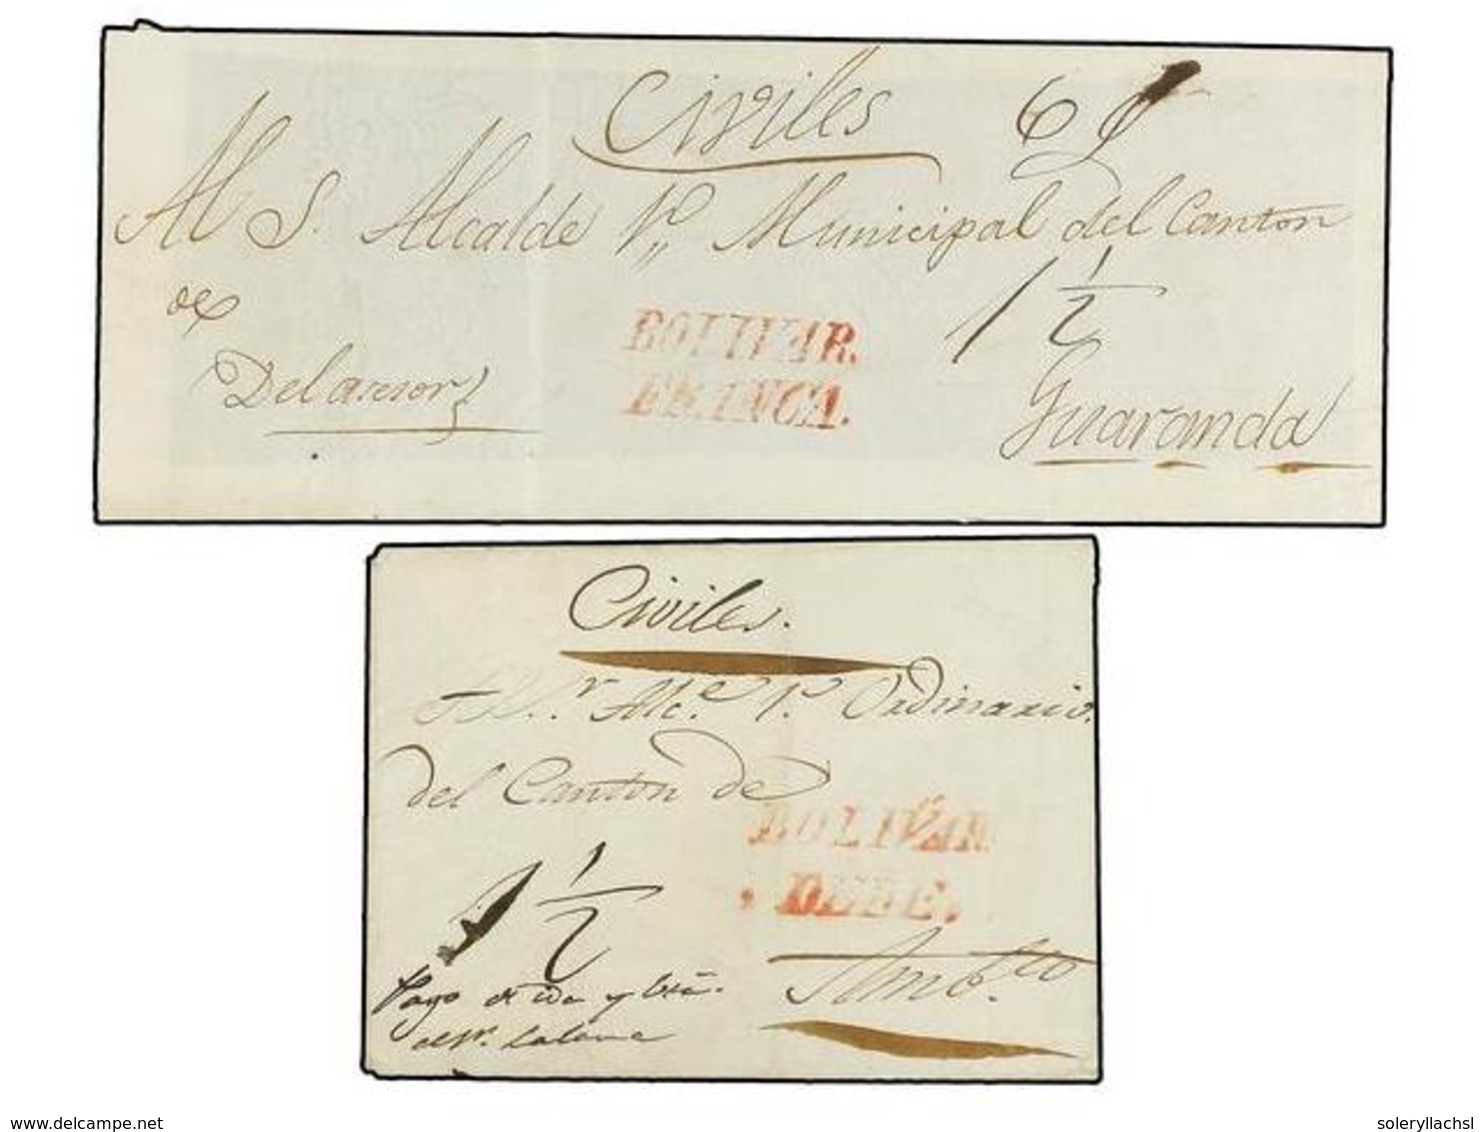 Civiles 6
Al S. Alcalde 1º,, Municipal del Canton
de
1 1/2
BOLIVAR.
FRANCA.
Del asesor
Guaranda
Civiles.
Sr. Alce. 1º Ordinario.
del Canton de
BOLIVAR
DEBE.
1 1/2
Ambto
Pago de ida y
www.delcampe.net
soleryllachsl